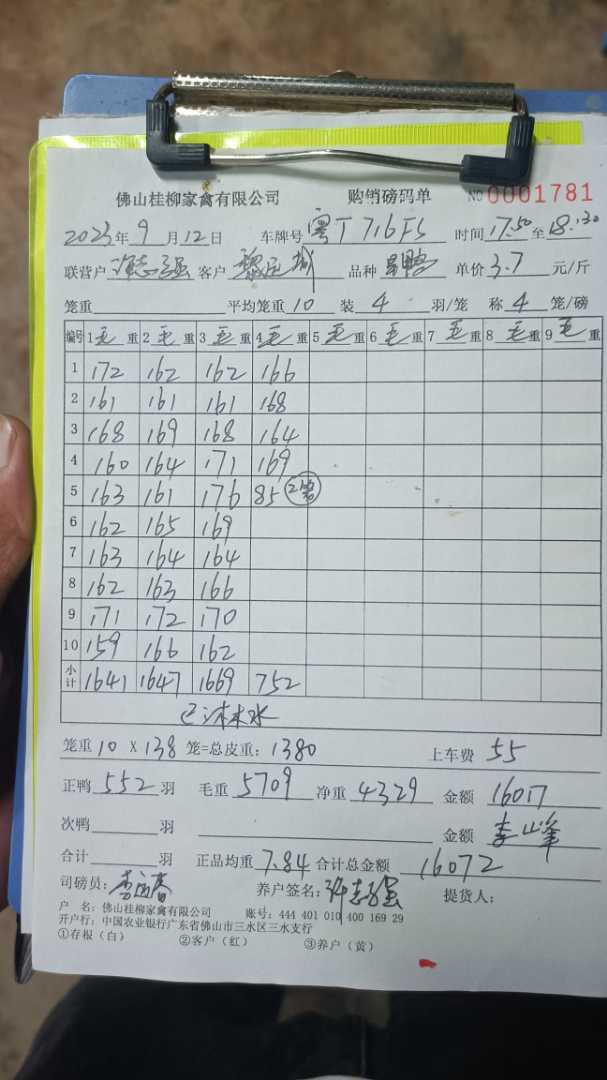 佛山桂柳家禽有限公司 购销磅码单 NO 0001781
2023年9月12日 车牌号 粤T716F5 时间 17:50 至 18:30
联营户 客户 品种 单价 3.7 元/斤
笼重 平均笼重 10 装 4 羽/笼 称 4 笼/磅
编号 1毛重 2毛重 3毛重 4毛重 5毛重 6毛重 7毛重 8毛重 9毛重
1 172 162 162 166
2 161 161 161 168
3 168 169 168 164
4 160 164 171 169
5 163 161 176 85 2笼
6 162 165 169
7 163 164 164
8 162 163 166
9 171 172 170
10 159 166 162
小计 1641 1647 1669 752
已沐水
笼重 10 X 138 笼=总皮重: 1380 上车费 55
正鸭 552 羽 毛重 5709 净重 4329 金额 16017
次鸭 羽 金额 李山峰
合计 羽 正品均重 7.84 合计总金额 16072
司磅员: 养户签名: 提货人:
户 名: 佛山桂柳家禽有限公司 账号: 444 401 010 400 169 29
开户行: 中国农业银行广东省佛山市三水区三水支行
①存根(白) ②客户(红) ③养户(黄)